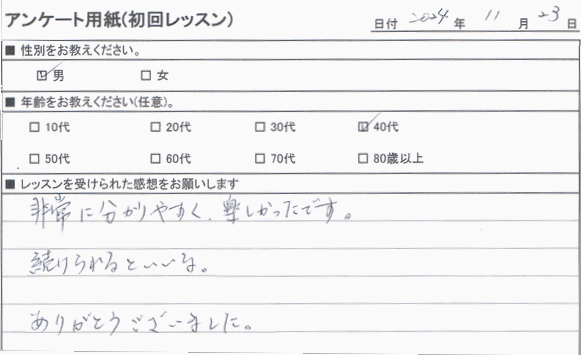 アンケート用紙(初回レッスン)
日付 2024 年 11 月 23 日
■ 性別をお教えください。
☑ 男 □ 女
■ 年齢をお教えください(任意)。
□ 10代 □ 20代 □ 30代 ☑ 40代
□ 50代 □ 60代 □ 70代 □ 80歳以上
■ レッスンを受けられた感想をお願いします
非常に分かりやすく、楽しかったです。
続けられるといいな。
ありがとうございました。